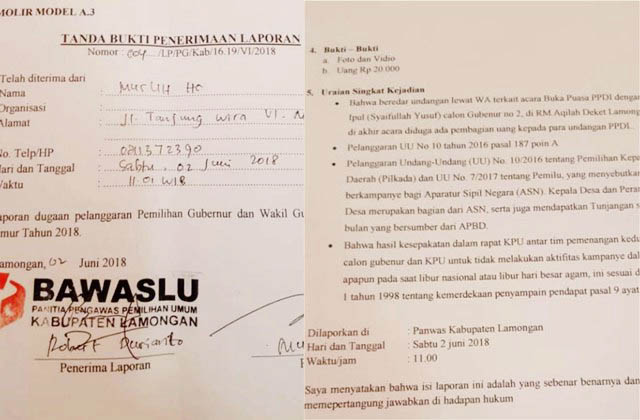 MOLIR MODEL A.3
TANDA BUKTI PENERIMAAN LAPORAN
Nomor : 004 /LP/PG/Kab/16.19/VI/2018
Telah diterima dari
Nama :
Organisasi :
Alamat : Jl. Tanjung Wira VI.
No. Telp/HP : 081372390
Hari dan Tanggal : Sabtu, 02 Juni 2018
Waktu : 11.01 WIB
aporan dugaan pelanggaran Pemilihan Gubernur dan Wakil Gu
mur Tahun 2018.
amongan, 02 Juni 2018
BAWASLU
PANITIA PENGAWAS PEMILIHAN UMUM
KABUPATEN LAMONGAN
Penerima Laporan
4. Bukti – Bukti
a. Foto dan Vidio
b. Uang Rp 20.000
5. Uraian Singkat Kejadian
• Bahwa beredar undangan lewat WA terkait acara Buka Puasa PPDI dengan
Ipul (Syaifullah Yusuf) calon Gubenur no 2, di RM.Aqilah Deket Lamong
di akhir acara diduga ada pembagian uang kepada para undangan PPDI.
• Pelanggaran UU No 10 tahun 2016 pasal 187 poin A
• Pelanggaran Undang-Undang (UU) No. 10/2016 tentang Pemilihan Kep
Daerah (Pilkada) dan UU No. 7/2017 tentang Pemilu, yang menyebutkan
berkampanye bagi Aparatur Sipil Negara (ASN). Kepala Desa dan Peran
Desa merupakan bagian dari ASN, serta juga mendapatkan Tunjangan s
bulan yang bersumber dari APBD.
• Bahwa hasil kesepakatan dalam rapat KPU antar tim pemenangan kedu
calon gubenur dan KPU untuk tidak melakukan aktifitas kampanye dala
apapun pada saat libur nasional atau libur hari besar agam, ini sesuai d
1 tahun 1998 tentang kemerdekaan penyampain pendapat pasal 9 ayat
Dilaporkan di : Panwas Kabupaten Lamongan
Hari dan Tanggal : Sabtu 2 juni 2018
Waktu/jam : 11.00
Saya menyatakan bahwa isi laporan ini adalah yang sebenar benarnya dan
memepertangung jawabkan di hadapan hukum